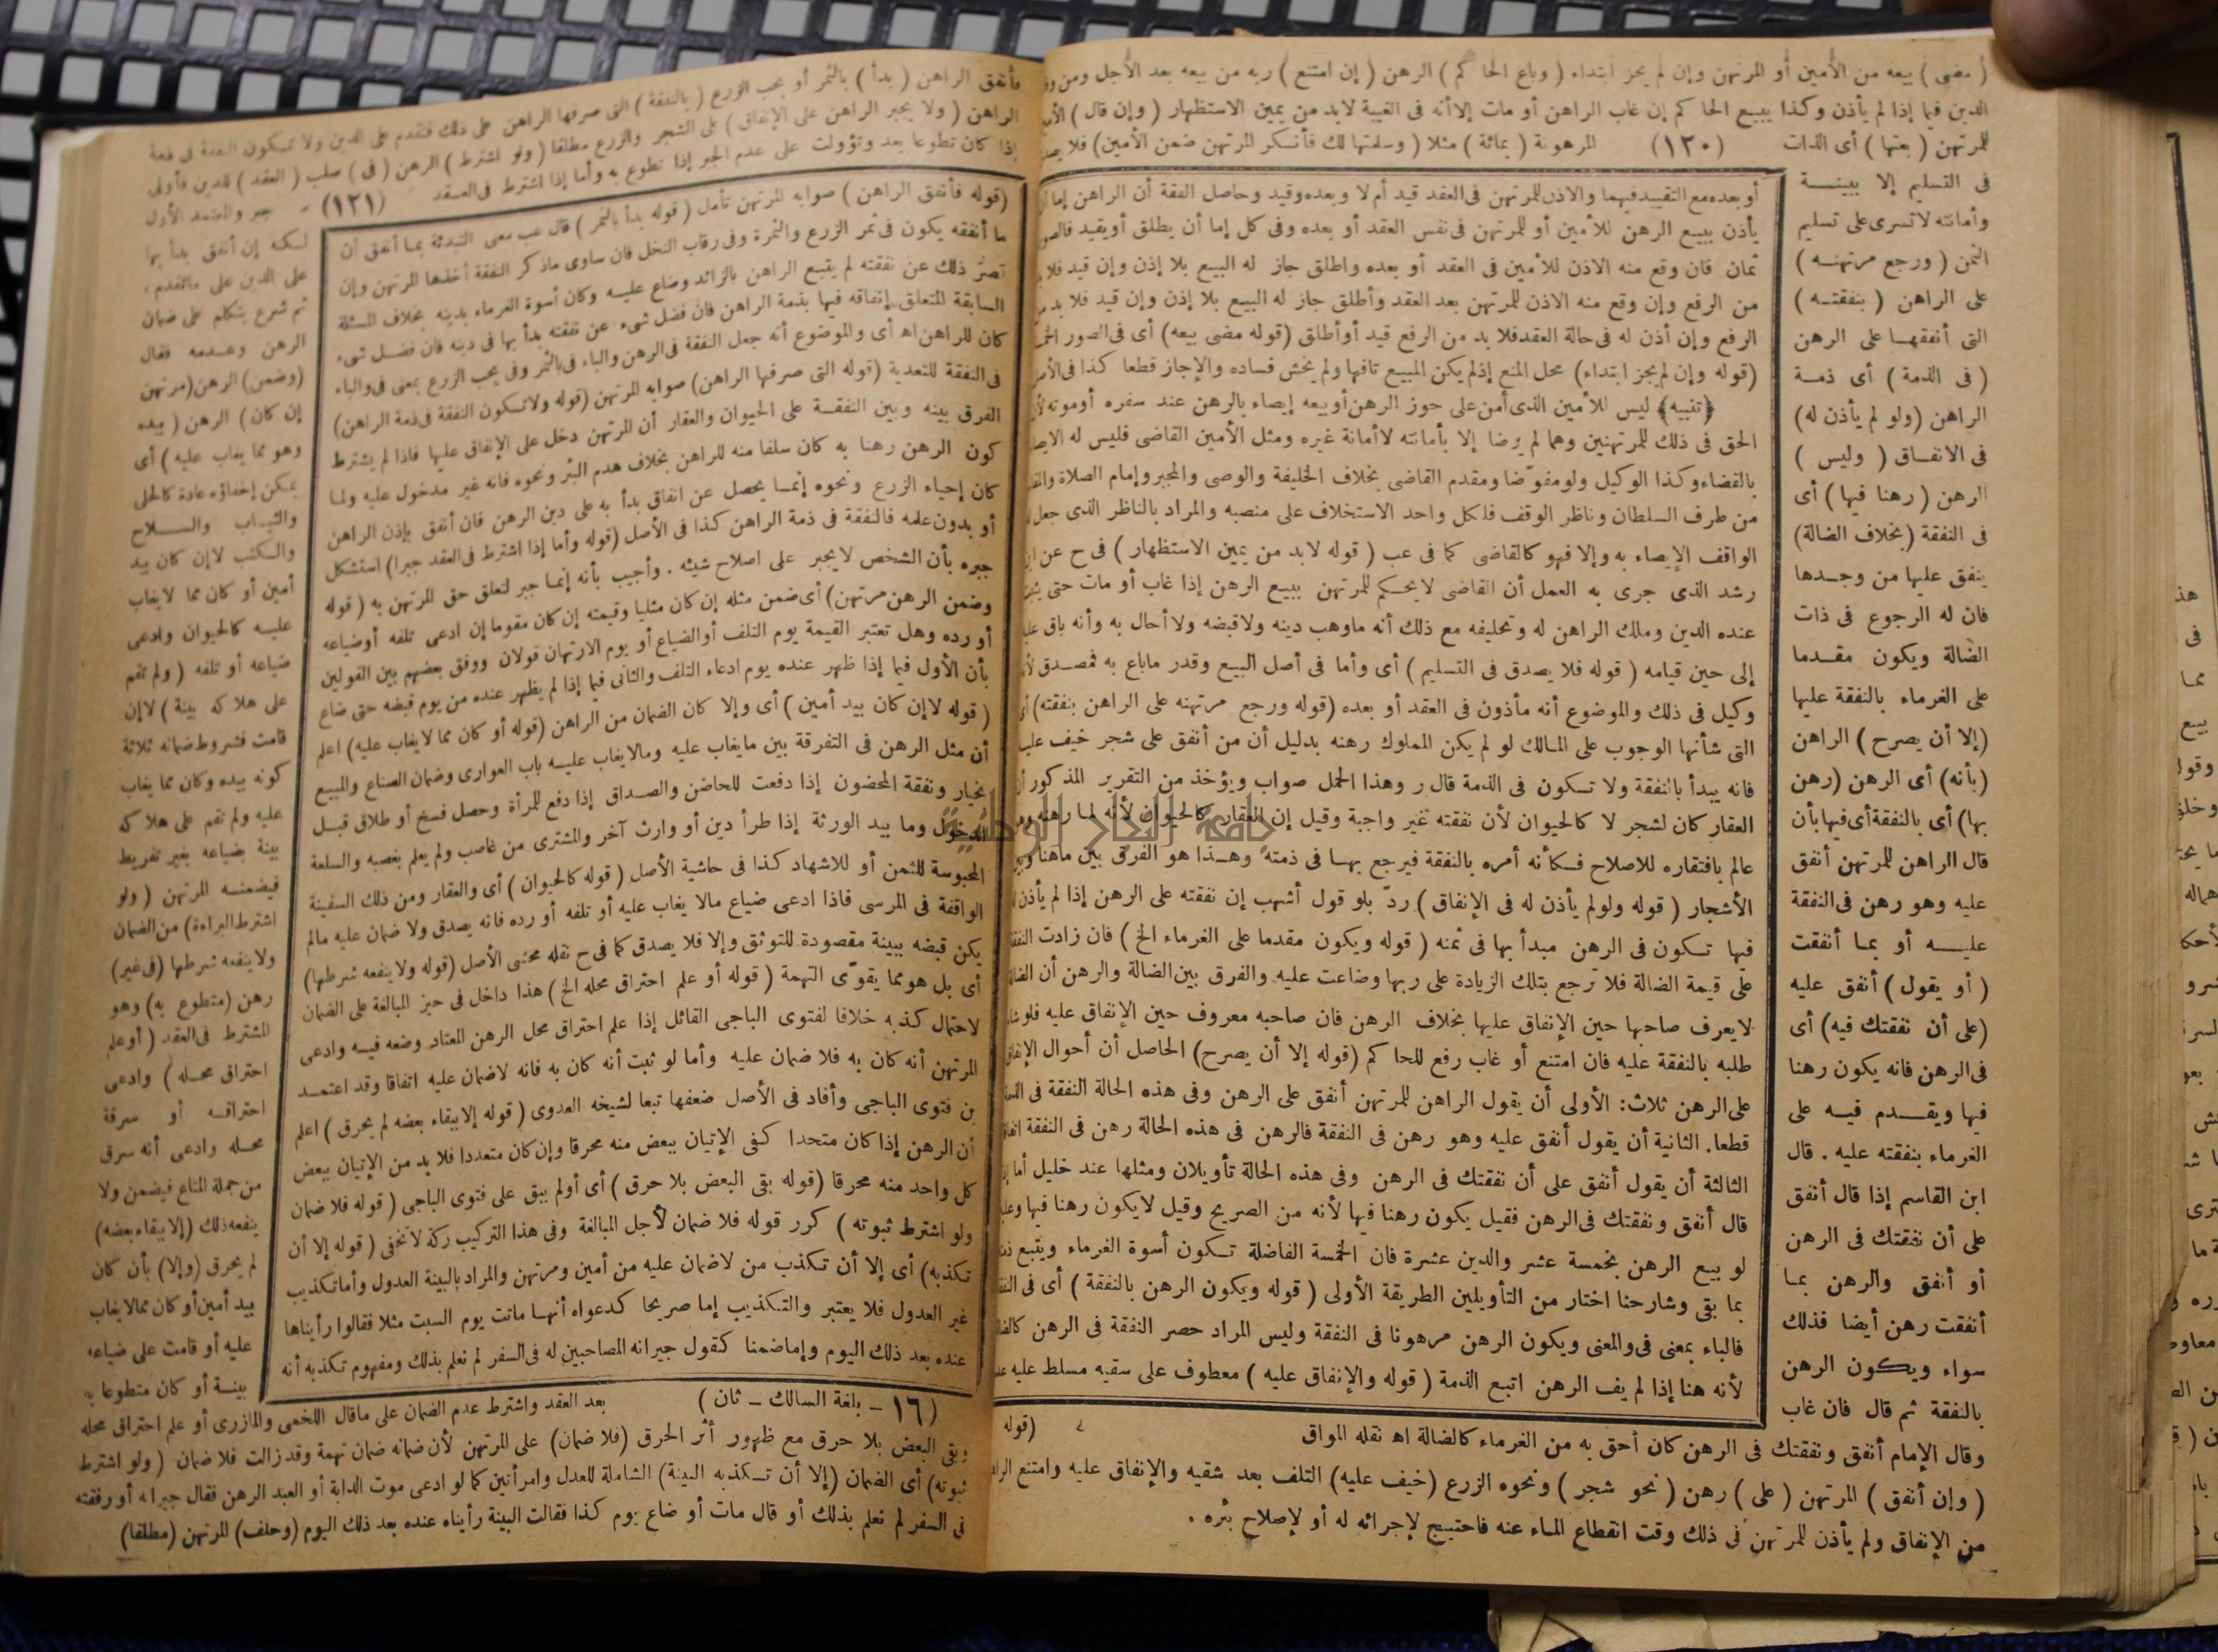 ( مضى ) بيعه من الأمين أو المرتهن وإن لم يجز ابتداء ( وباع الحاكم ) الرهن ( إن امتنع ) ربه من بيعه بعد الأجل ومن
الدين فيما إذا لم يأذن وكذا يبيع الحاكم إن غاب الراهن أو مات إلا أنه فى الغيبة لابد من يمين الاستظهار ( وإن قال )
للمرتهن ( بعتها ) أى الذات (١٢٠) المرهونة ( بمائة ) مثلا ( وسلمتها لك فأنكر المرتهن ضمن الأمين ) فلا
فى التسليم إلا ببينة
وأمانته لا تسرى على تسليم
الثمن ( ورجع مرتهنه )
على الراهن ( بنفقته )
التى أنفقها على الرهن
( فى الذمة ) أى ذمة
الراهن (ولو لم يأذن له)
فى الانفاق ( وليس )
الرهن ( رهنا فيها ) أى
فى النفقة (بخلاف الضالة)
ينفق عليها من وجدها
فان له الرجوع فى ذات
الضالة ويكون مقدما
على الغرماء بالنفقة عليها
(إلا أن يصرح ) الراهن
(بأنه) أى الرهن (رهن
بها) أى بالنفقة أى فيها بأن
قال الراهن للمرتهن أنفق
عليه وهو رهن فى النفقة
عليه أو بما أنفقت
( أو يقول ) أنفق عليه
(على أن نفقتك فيه) أى
فى الرهن فانه يكون رهنا
فيها ويقدم فيه على
الغرماء بنفقته عليه . قال
ابن القاسم إذا قال أنفق
على أن نفقتك فى الرهن
أو أنفق والرهن بما
أنفقت رهن أيضا فذلك
سواء ويكون الرهن
بالنفقة ثم قال فان غاب
وقال الإمام أنفق ونفقتك فى الرهن كان أحق به من الغرماء كالضالة اه نقله المواق
( وإن أنفق ) المرتهن ( على ) رهن ( نحو شجر ) ونحوه الزرع (خيف عليه) التلف بعد سقيه والإنفاق عليه وامتنع
من الإنفاق ولم يأذن للمرتهن فى ذلك وقت انقطاع الماء عنه فاحتيج لإجرائه له أو لإصلاح بئره .
أو بعده مع التقييد فيهما والاذن للمرتهن فى العقد قيد أم لا وبعده وقيد وحاصل الفقة أن الراهن إما
يأذن ببيع الرهن للأمين أو للمرتهن فى نفس العقد أو بعده وفى كل إما أن يطلق أو يقيد
ثمان فان وقع منه الاذن للأمين فى العقد أو بعده وأطلق جاز له البيع بلا إذن وإن قيد فلا
من الرفع وإن وقع منه الاذن للمرتهن بعد العقد وأطلق جاز له البيع بلا إذن وإن قيد فلا بد
الرفع وإن أذن له فى حالة العقد فلا بد من الرفع قيد أو أطلق (قوله مضى بيعه) أى فى الصور
(قوله وإن لم يجز ابتداء) محل المنع إذ لم يكن المبيع تافها ولم يخش فساده والإجاز قطعا كذا فى
﴿تنبيه﴾ ليس للأمين الذى أمن على حوز الرهن أو بيعه إيصاء بالرهن عند سفره أو موته
الحق فى ذلك للمرتهنين وهما لم يرضا إلا بأمانته لا أمانة غيره ومثل الأمين القاضى فليس له
بالقضاء وكذا الوكيل ولو مفوّضا ومقدم القاضى بخلاف الخليفة والوصى والمجبر وإمام الصلاة
من طرف السلطان وناظر الوقف فلكل واحد الاستخلاف على منصبه والمراد بالناظر الذى جعل
الواقف الإيصاء به وإلا فهو كالقاضى كما فى عب ( قوله لابد من يمين الاستظهار ) فى ح عن
رشد الذى جرى به العمل أن القاضى لا يحكم للمرتهن ببيع الرهن إذا غاب أو مات حتى
عنده الدين وملك الراهن له وتحليفه مع ذلك أنه ما وهب دينه ولا قبضه ولا أحال به وأنه باق
إلى حين قيامه ( قوله فلا يصدق فى التسليم ) أى وأما فى أصل البيع وقدر ما باع به فمصدق
وكيل فى ذلك والموضوع أنه مأذون فى العقد أو بعده (قوله ورجع مرتهنه على الراهن بنفقته)
التى شأنها الوجوب على المالك لو لم يكن المملوك رهنه بدليل أن من أنفق على شجر خيف
فانه يبدأ بالنفقة ولا تكون فى الذمة قال ر وهذا الحمل صواب ويؤخذ من التقرير المذكور
العقار كان لشجر لا كالحيوان لأن نفقته غير واجبة وقيل إن العقار كالحيوان لأنه لما رهنه
عالم بافتقاره للاصلاح فكأنه أمره بالنفقة فيرجع بها فى ذمته وهذا هو الفرق بين ما هنا
الأشجار ( قوله ولو لم يأذن له فى الإنفاق ) ردّ بلو قول أشهب إن نفقته على الرهن إذا لم يأذن
فيها تكون فى الرهن مبدأ بها فى ثمنه ( قوله ويكون مقدما على الغرماء الخ ) فان زادت
على قيمة الضالة فلا ترجع بتلك الزيادة على ربها وضاعت عليه والفرق بين الضالة والرهن أن
لا يعرف صاحبها حين الإنفاق عليها بخلاف الرهن فان صاحبه معروف حين الإنفاق عليه
طلبه بالنفقة عليه فان امتنع أو غاب رفع للحاكم (قوله إلا أن يصرح) الحاصل أن أحوال
على الرهن ثلاث: الأولى أن يقول الراهن للمرتهن أنفق على الرهن وفى هذه الحالة النفقة فى
قطعا. الثانية أن يقول أنفق عليه وهو رهن فى النفقة فالرهن فى هذه الحالة رهن فى النفقة
الثالثة أن يقول أنفق على أن نفقتك فى الرهن وفى هذه الحالة تأويلان ومثلها عند خليل
قال أنفق ونفقتك فى الرهن فقيل يكون رهنا فيها لأنه من الصريح وقيل لا يكون رهنا فيها
لو بيع الرهن بخمسة عشر والدين عشرة فان الخمسة الفاضلة تكون أسوة الغرماء ويتبع
بما بقى وشارحنا اختار من التأويلين الطريقة الأولى ( قوله ويكون الرهن بالنفقة ) أى فى
فالباء بمعنى فى والمعنى ويكون الرهن مرهونا فى النفقة وليس المراد حصر النفقة فى الرهن
لأنه هنا إذا لم يف الرهن اتبع الذمة ( قوله والإنفاق عليه ) معطوف على سقيه مسلط عليه
(قوله
فأنفق الراهن ( بدأ ) بالثمر أو بحب الزرع ( بالنفقة ) التى صرفها الراهن على ذلك فتقدم على الدين ولا تكون النفقة فى ذمة
الراهن ( ولا يجبر الراهن على الإنفاق ) على الشجر والزرع مطلقا ( ولو اشترط ) الرهن ( فى ) صلب ( العقد ) للدين فأولى
إذا كان تطوعا بعد وتؤولت على عدم الجبر إذا تطوع به وأما إذا اشترط فى العقد (١٢١) جبر والمعتمد الأول
لكنه إن أنفق بدأ بها
على الدين على ما تقدم .
ثم شرع يتكلم على ضمان
الرهن وعدمه فقال
(وضمن) الرهن (مرتهن
إن كان ) الرهن ( بيده
وهو مما يغاب عليه ) أى
يمكن إخفاؤه عادة كالحلى
والثياب والسلاح
والكتب لا إن كان بيد
أمين أو كان مما لا يغاب
عليه كالحيوان وادعى
ضياعه أو تلفه ( ولم تقم
على هلاكه بينة ) لا إن
قامت فشروط ضمانه ثلاثة
كونه بيده وكان مما يغاب
عليه ولم تقم على هلاكه
بينة بضياعه بغير تفريط
فيضمنه المرتهن ( ولو
اشترط البراءة ) من الضمان
ولا ينفعه شرطها (فى غير)
رهن (متطوع به) وهو
المشترط فى العقد ( أو علم
احتراق محله ) وادعى
احتراقه أو سرقة
محله وادعى أنه سرق
من جملة المتاع فيضمن ولا
ينفعه ذلك (إلا ببقاء بعضه)
لم يحرق (وإلا) بأن كان
بيد أمين أو كان مما لا يغاب
عليه أو قامت على ضياعه
بينة أو كان متطوعا به
(قوله فأنفق الراهن ) صوابه المرتهن تأمل ( قوله بدأ بالثمر ) قال عب معنى التبدئة بما أنفق أن
ما أنفقه يكون فى ثمر الزرع والثمرة وفى رقاب النخل فان ساوى ما ذكر النفقة أخذها المرتهن وإن
قصر ذلك عن نفقته لم يتبع الراهن بالزائد وضاع عليه وكان أسوة الغرماء بدينه بخلاف المسئلة
السابقة المتعلق إنفاقه فيها بذمة الراهن فان فضل شىء عن نفقته بدأ بها فى دينه فان فضل شىء
كان للراهن اه أى والموضوع أنه جعل النفقة فى الرهن والباء فى بالثمر وفى بحب الزرع بمعنى فى والباء
فى النفقة للتعدية (قوله التى صرفها الراهن) صوابه المرتهن (قوله ولا تكون النفقة فى ذمة الراهن)
الفرق بينه وبين النفقة على الحيوان والعقار أن المرتهن دخل على الإنفاق عليها فاذا لم يشترط
كون الرهن رهنا به كان سلفا منه للراهن بخلاف هدم البئر ونحوه فانه غير مدخول عليه ولما
كان إحياء الزرع ونحوه إنما يحصل عن انفاق بدأ به على دين الرهن فان أنفق بإذن الراهن
أو بدون علمه فالنفقة فى ذمة الراهن كذا فى الأصل (قوله وأما إذا اشترط فى العقد جبر) استشكل
جبره بأن الشخص لا يجبر على اصلاح شيئه . وأجيب بأنه إنما جبر لتعلق حق المرتهن به ( قوله
وضمن الرهن مرتهن) أى ضمن مثله إن كان مثليا وقيمته إن كان مقوما إن ادعى تلفه أو ضياعه
أو رده وهل تعتبر القيمة يوم التلف أو الضياع أو يوم الارتهان قولان ووفق بعضهم بين القولين
بأن الأول فيما إذا ظهر عنده يوم ادعاء التلف والثانى فيما إذا لم يظهر عنده من يوم قبضه حتى ضاع
( قوله لا إن كان بيد أمين ) أى وإلا كان الضمان من الراهن (قوله أو كان مما لا يغاب عليه) اعلم
أن مثل الرهن فى التفرقة بين ما يغاب عليه وما لا يغاب عليه باب العوارى وضمان الصناع والمبيع
بخيار ونفقة المحضون إذا دفعت للحاضن والصداق إذا دفع للمرأة وحصل فسخ أو طلاق قبل
الدخول وما بيد الورثة إذا طرأ دين أو وارث آخر والمشترى من غاصب ولم يعلم بغصبه والسلعة
المحبوسة للثمن أو للاشهاد كذا فى حاشية الأصل ( قوله كالحيوان ) أى والعقار ومن ذلك السفينة
الواقفة فى المرسى فاذا ادعى ضياع مالا يغاب عليه أو تلفه أو رده فانه يصدق ولا ضمان عليه مالم
يكن قبضه ببينة مقصودة للتوثق وإلا فلا يصدق كما فى ح نقله محشى الأصل (قوله ولا ينفعه شرطها)
أى بل هو مما يقوّى التهمة ( قوله أو علم احتراق محله الخ ) هذا داخل فى حيز المبالغة على الضمان
لاحتمال كذبه خلافا لفتوى الباجى القائل إذا علم احتراق محل الرهن المعتاد وضعه فيه وادعى
المرتهن أنه كان به فلا ضمان عليه وأما لو ثبت أنه كان به فانه لا ضمان عليه اتفاقا وقد اعتمد
بن فتوى الباجى وأفاد فى الأصل ضعفها تبعا لشيخه العدوى ( قوله إلا ببقاء بعضه لم يحرق ) اعلم
أن الرهن إذا كان متحدا كفى الإتيان ببعض منه محرقا وإن كان متعددا فلا بد من الإتيان ببعض
كل واحد منه محرقا (قوله بقى البعض بلا حرق ) أى أو لم يبق على فتوى الباجى ( قوله فلا ضمان
ولو اشترط ثبوته ) كرر قوله فلا ضمان لأجل المبالغة وفى هذا التركيب ركة لا تخفى ( قوله إلا أن
تكذبه) أى إلا أن تكذب من لا ضمان عليه من أمين ومرتهن والمراد بالبينة العدول وأما تكذيب
غير العدول فلا يعتبر والتكذيب إما صريحا كدعواه أنها ماتت يوم السبت مثلا فقالوا رأيناها
عنده بعد ذلك اليوم وإما ضمنا كقول جيرانه المصاحبين له فى السفر لم نعلم بذلك ومفهوم تكذبه أنه
(١٦ - بلغة السالك - ثان ) بعد العقد واشترط عدم الضمان على ما قال اللخمى والمازرى أو علم احتراق محله
وبقى البعض بلا حرق مع ظهور أثر الحرق (فلا ضمان) على المرتهن لأن ضمانه ضمان تهمة وقد زالت فلا ضمان ( ولو اشترط
ثبوته) أى الضمان (إلا أن تكذبه البينة) الشاملة للعدل وامرأتين كما لو ادعى موت الدابة أو العبد الرهن فقال جيرانه أو رفقته
فى السفر لم نعلم بذلك أو قال مات أو ضاع يوم كذا فقالت البينة رأيناه عنده بعد ذلك اليوم (وحلف) المرتهن (مطلقا)
جامعة النجاح الوطنية